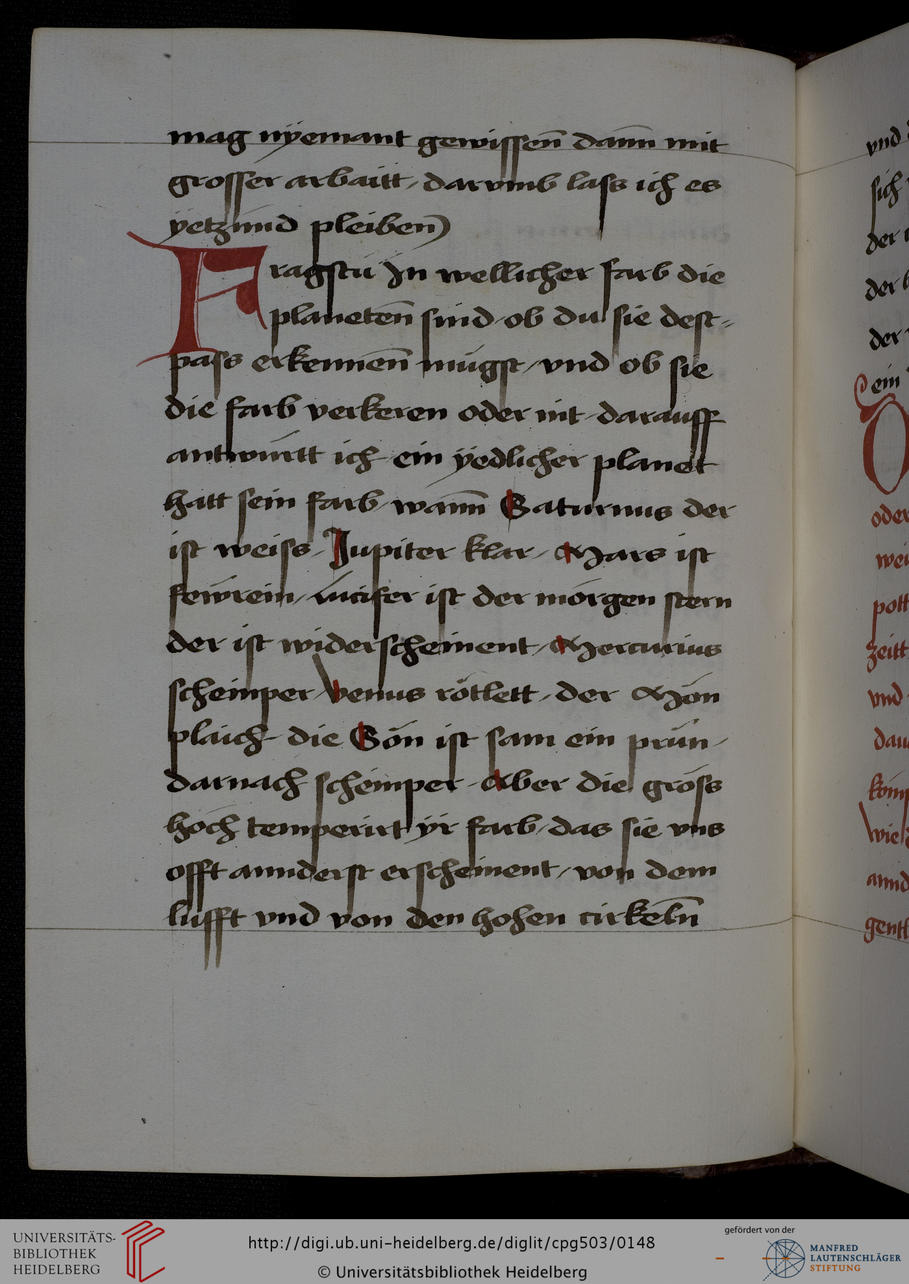 mag nÿemant gewissen̄ dann̄ mit
grosser arbaitt / darvmb lass ich es
yetzund pleiben)
Fragstu In wellicher farb die
planeten̄ sind / ob du sie dest
pass erkennen̄ mügst / vnd ob sie
die farb verkeren oder nit / darauff
antwürtt ich / ein yedlicher planet
hatt sein farb / wann̄ Saturnus der
ist weiss / Jupiter klar / Mars ist
fewrein / lucifer ist der morgen stern
der ist widerscheinent / Mercurius
scheinper / Venus rötlett / der Mön
plaich / die Sön ist sam ein prün /
darnach scheinper / Aber die gröss
höch temperirt ÿr farb / das sie vns
offt annderst erscheinent / von dem
lufft vnd von den hohen cirkeln̄
vnd
sich
der
der
der
ein
oder
wei
pott
zeitt
vnd
dau
köm
wie
annd
gent
UNIVERSITÄTS-
BIBLIOTHEK
HEIDELBERG
http://digi.ub.uni-heidelberg.de/diglit/cpg503/0148
© Universitätsbibliothek Heidelberg
gefördert von der
MANFRED
LAUTENSCHLÄGER
STIFTUNG